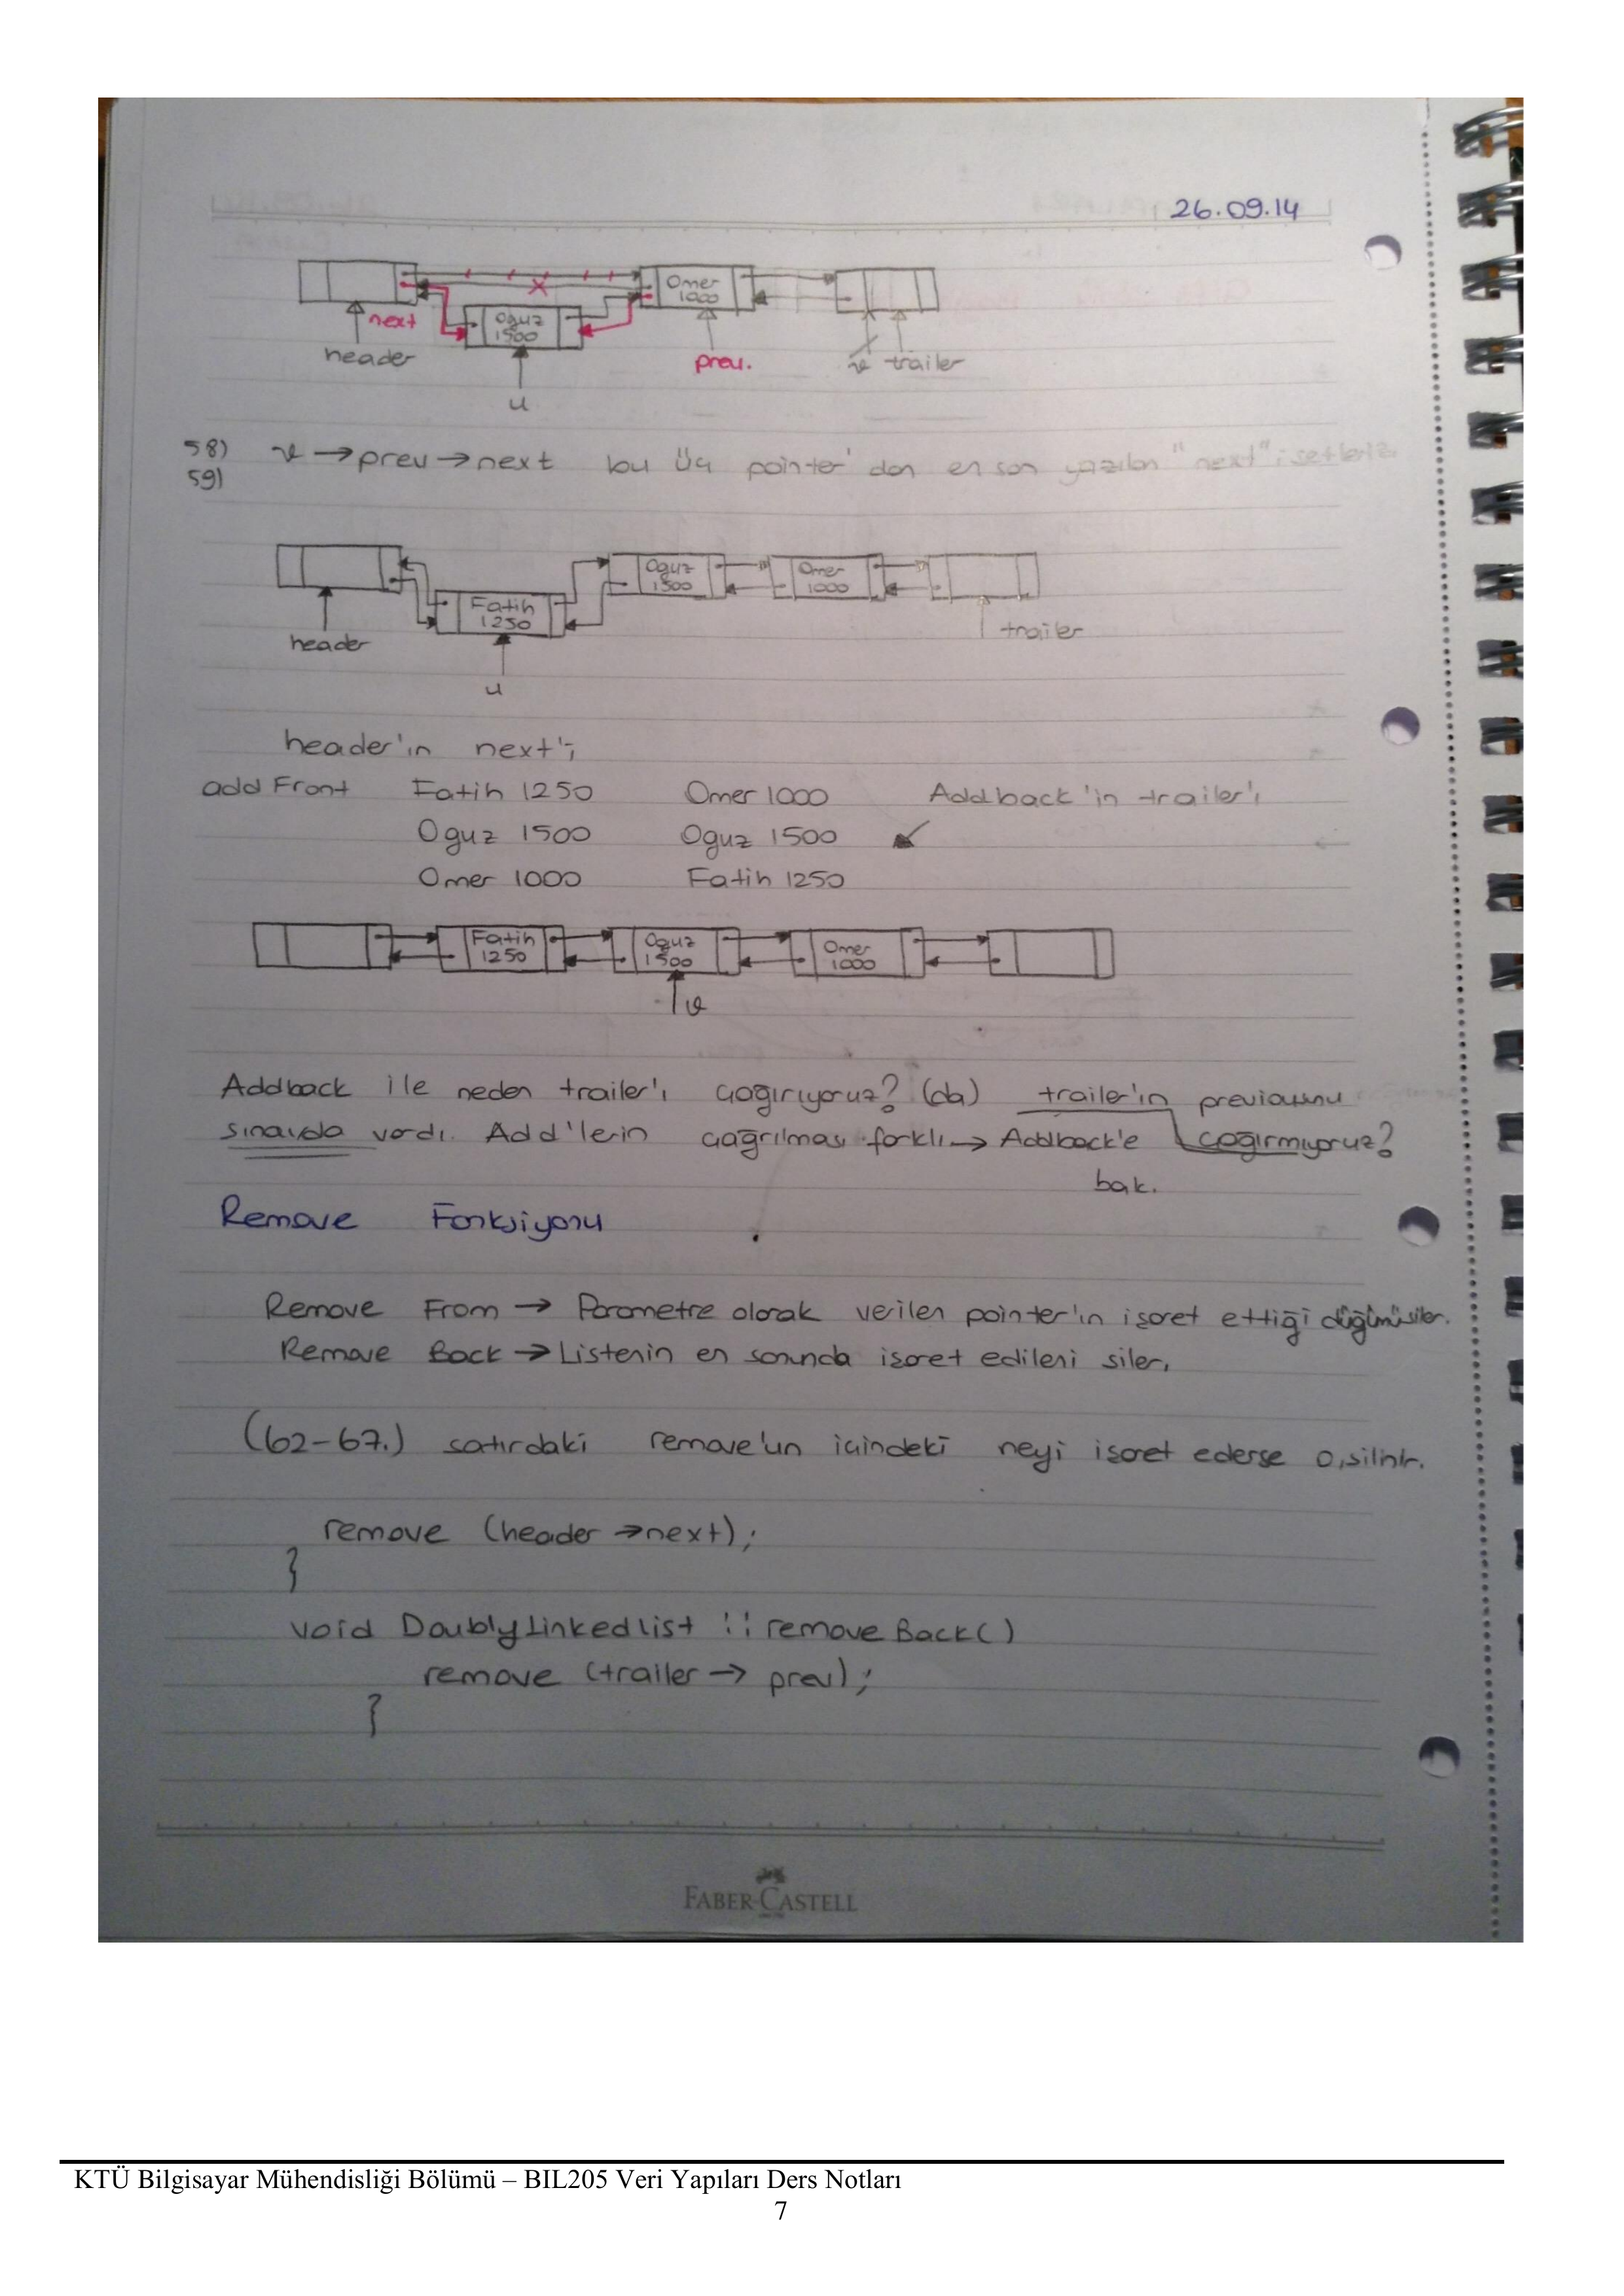 26.09.14
Omer
1000
Oguz
1500
next
header
prev.
v trailer
u
58) v → prev → next bu üç pointer'dan en son yazılan "next"i setleriz
59)
Oguz
1500
Omer
1000
Fatih
1250
header
trailer
u
header'ın next'i
add Front Fatih 1250 Omer 1000 Addback'in trailer'ı
Oguz 1500 Oguz 1500
Omer 1000 Fatih 1250
Fatih
1250
Oguz
1500
Omer
1000
v
Addback ile neden trailer'ı çağırıyoruz? (da) trailer'ın previousunu
sınavda vardı. Add'lerin çağrılması farklı → Addback'e çağırmıyoruz?
bak.
Remove Fonksiyonu
Remove From → Parametre olarak verilen pointer'ın işaret ettiği düğümü siler.
Remove Back → Listenin en sonunda işaret edileni siler.
(62-67.) satırdaki remove'un içindeki neyi işaret ederse o, silinir.
remove (header → next);
}
void DoublyLinkedlist :: remove Back()
remove (trailer → prev);
}
FABER-CASTELL
KTÜ Bilgisayar Mühendisliği Bölümü – BIL205 Veri Yapıları Ders Notları
7